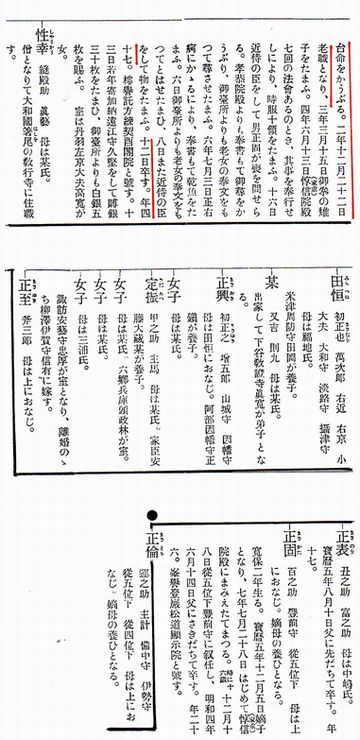 台命をかうぶる。二年十二月二十二日
老職となり、三年三月十五日御祭の雉
子をたまふ。四年六月十三日惇信院殿(家重)
七回の法會あるのとき、其事を奉行せ
しにより、時服十領をたまふ。十六日
近侍の臣をして男正固が喪を問せら
る。孝恭院殿よりも奉書もて御尋をか
うぶり、御臺所よりも老女の奉文をも
つて尋させたまふ。六年七月三日正右
病にかゝるにより、奉書もて乾魚をた
まふ。六日御臺所よりも老女の奉文をも
つてとはせたまひ、八日また近侍の臣
をして物をたまふ。十二日卒す。年四
十七。樗譽託方練契西關院と號す。十
三日若年寄加納遠江守久堅をして賻銀
三十枚をたまひ、御臺所よりも白銀五
枚を賜ふ。 室は丹羽左京大夫高寬が
女。
性幸 縫殿助 眞藝 母は某氏。
僧となりて大和國箸尾の敎行寺に住職
す。
田恒 初正也 萬次郎 右近 右京 小
大夫 大和守 淡路守 攝津守
母は福地氏。
米津周防守田岡が養子。
某 又吉 則九 母は某氏。
出家して下谷敎證寺眞寬が弟子とな
る。
正興 初正之 增五郎 山城守 因幡守
母は田恒におなじ。阿部因幡守正
鎭が養子。
女子 母は某氏。
定振 甲之助 主馬 母は某氏。家臣安
藤大蔵某が養子。
女子 母は某氏。 六郷兵庫頭政林が室。
女子 母は三浦氏。
諏訪安藝守忠厚が室となり、離婚のゝ
ち柳澤伊賀守信有に嫁す。
正至 斧三郎 母は上におなじ。
正表 丑之助 富之助 母は中嶋氏。
寶曆五年八月十日父に先だちて卒す。年
十七。
正固 百之助 豐前守 從五位下 母は上
におなじ。嫡母の養ひとなる。
寬保二年生る。 寶曆五年十二月五日嫡子
となり、七年七月二十八日 はじめて惇信(家重)
院殿にまみえたてまつる。時に十六歲 十二月十
八日從五位下豐前守に叙任し、明和四年
六月十四日父にさきだちて卒す。年二十
六。峯譽登嚴松道顯示院と號す。
正倫 運之助 主計 備中守 伊勢守
從五位下 從四位下 母は上にお
なじ。嫡母の養ひとなる。